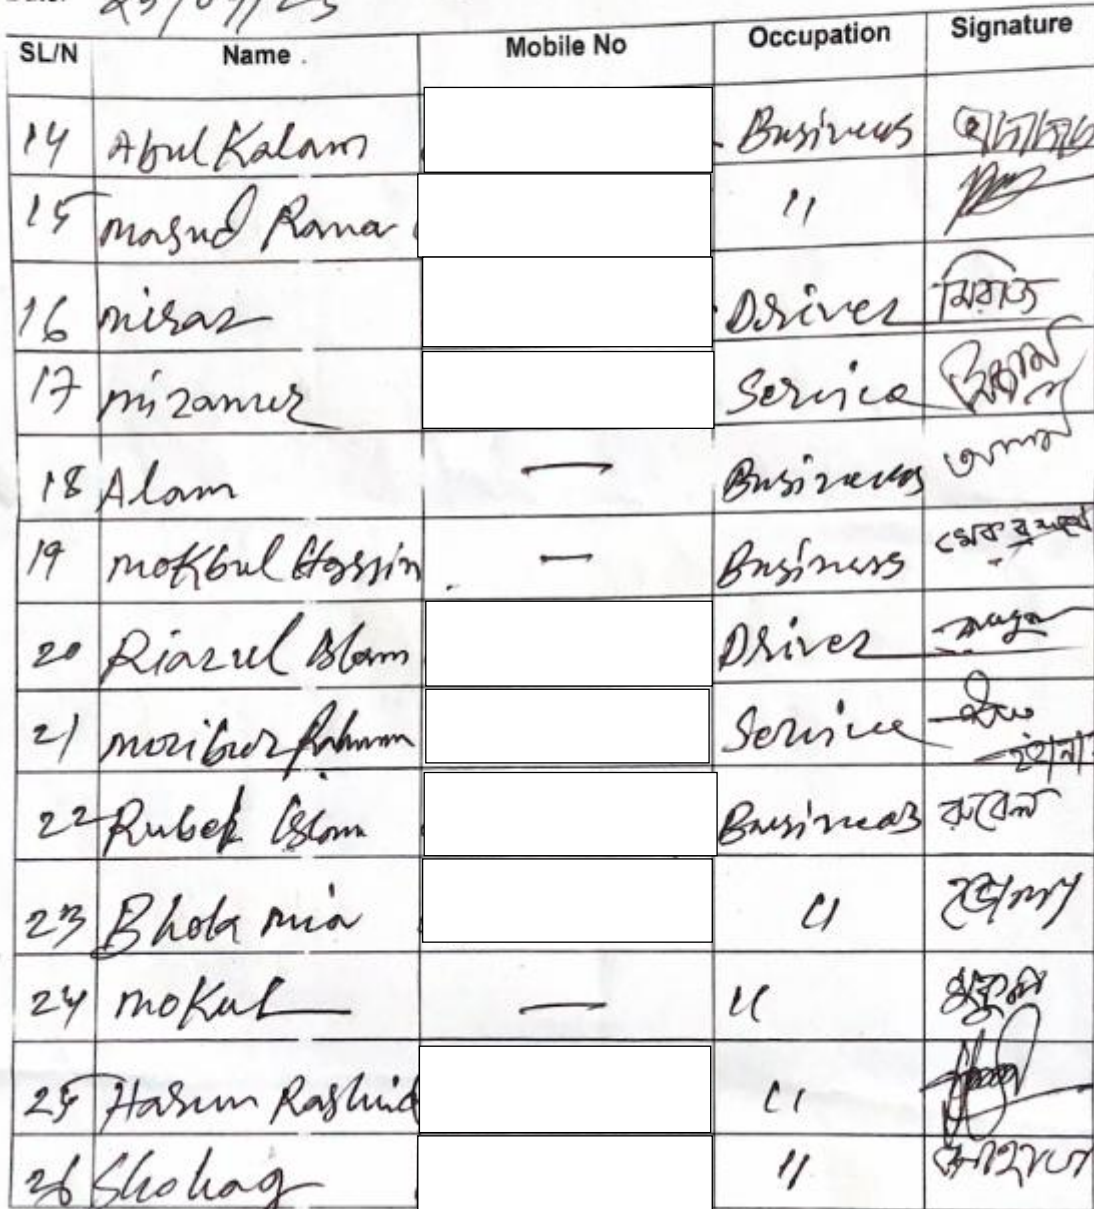 SL/N Name Mobile No Occupation Signature
14 Abul Kalam Business
15 Masud Rana "
16 Miraz Driver মিরাজ
17 Mizanur Service
18 Alam Business আলম
19 Mokbul Hossin — Business
20 Riazul Islam Driver
21 Moribur Rahman Service
22 Rubel Islam Business রুবেল
23 Bhola Mia "
24 Mokul — "
25 Harun Rashid "
26 Shohag "